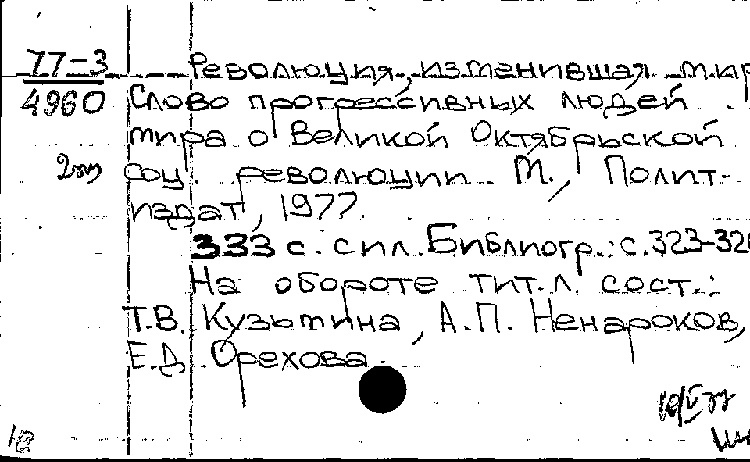 77-3
4960
Революция, изменившая мир
Слово прогрессивных людей
мира о Великой Октябрьской
соц. революции. М., Полит-
издат, 1977.
333 с. с ил. Библиогр.: с. 323-32
На обороте тит. л. сост.:
Т.В. Кузьмина, А.П. Ненароков,
Е.Д. Орехова.